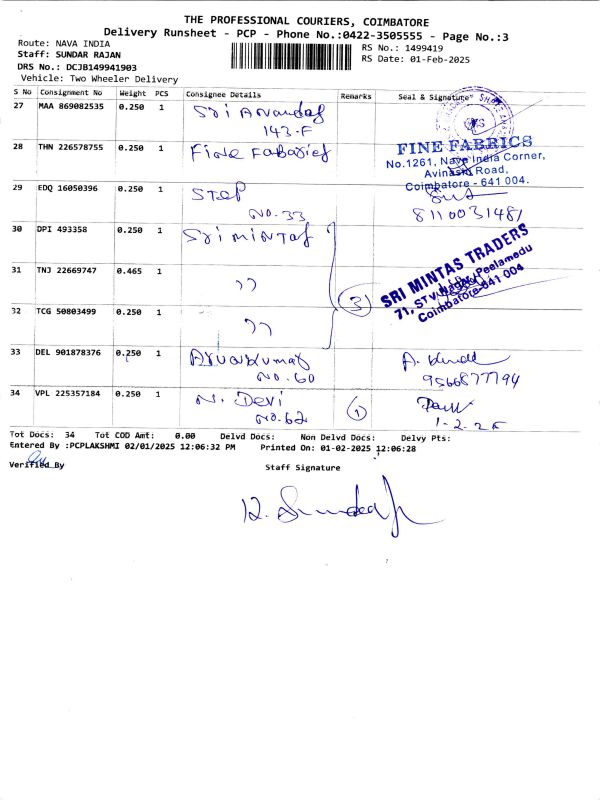 THE PROFESSIONAL COURIERS, COIMBATORE
Delivery Runsheet - PCP - Phone No.:0422-3505555 - Page No.:3
Route: NAVA INDIA
RS No.: 1499419
Staff: SUNDAR RAJAN
RS Date: 01-Feb-2025
DRS No.: DCJB149941903
Vehicle: Two Wheeler Delivery
S No Consignment No Weight PCS Consignee Details Remarks Seal & Signature
27 MAA 869082535 0.250 1 Sri Anandas
143-F
28 THN 226578755 0.250 1 Fine Fabasies
FINE FABRICS
No.1261, Nava India Corner,
Avinashi Road,
Coimbatore - 641 004.
29 EDQ 16050396 0.250 1 Step
No. 33
8110031481
30 DPI 493358 0.250 1 Sri mintas
31 TNJ 22669747 0.465 1 ,,
3
SRI MINTAS TRADERS
71, STV Nagar, Peelamedu
Coimbatore-641 004
32 TCG 50803499 0.250 1 ,,
33 DEL 901878376 0.250 1 Arunkumar
No. 60
9566877194
34 VPL 225357184 0.250 1 N. Devi
No. 62
1
1-2-25
Tot Docs: 34 Tot COD Amt: 0.00 Delvd Docs: Non Delvd Docs: Delvy Pts:
Entered By :PCPLAKSHMI 02/01/2025 12:06:32 PM Printed On: 01-02-2025 12:06:28
Verified By
Staff Signature